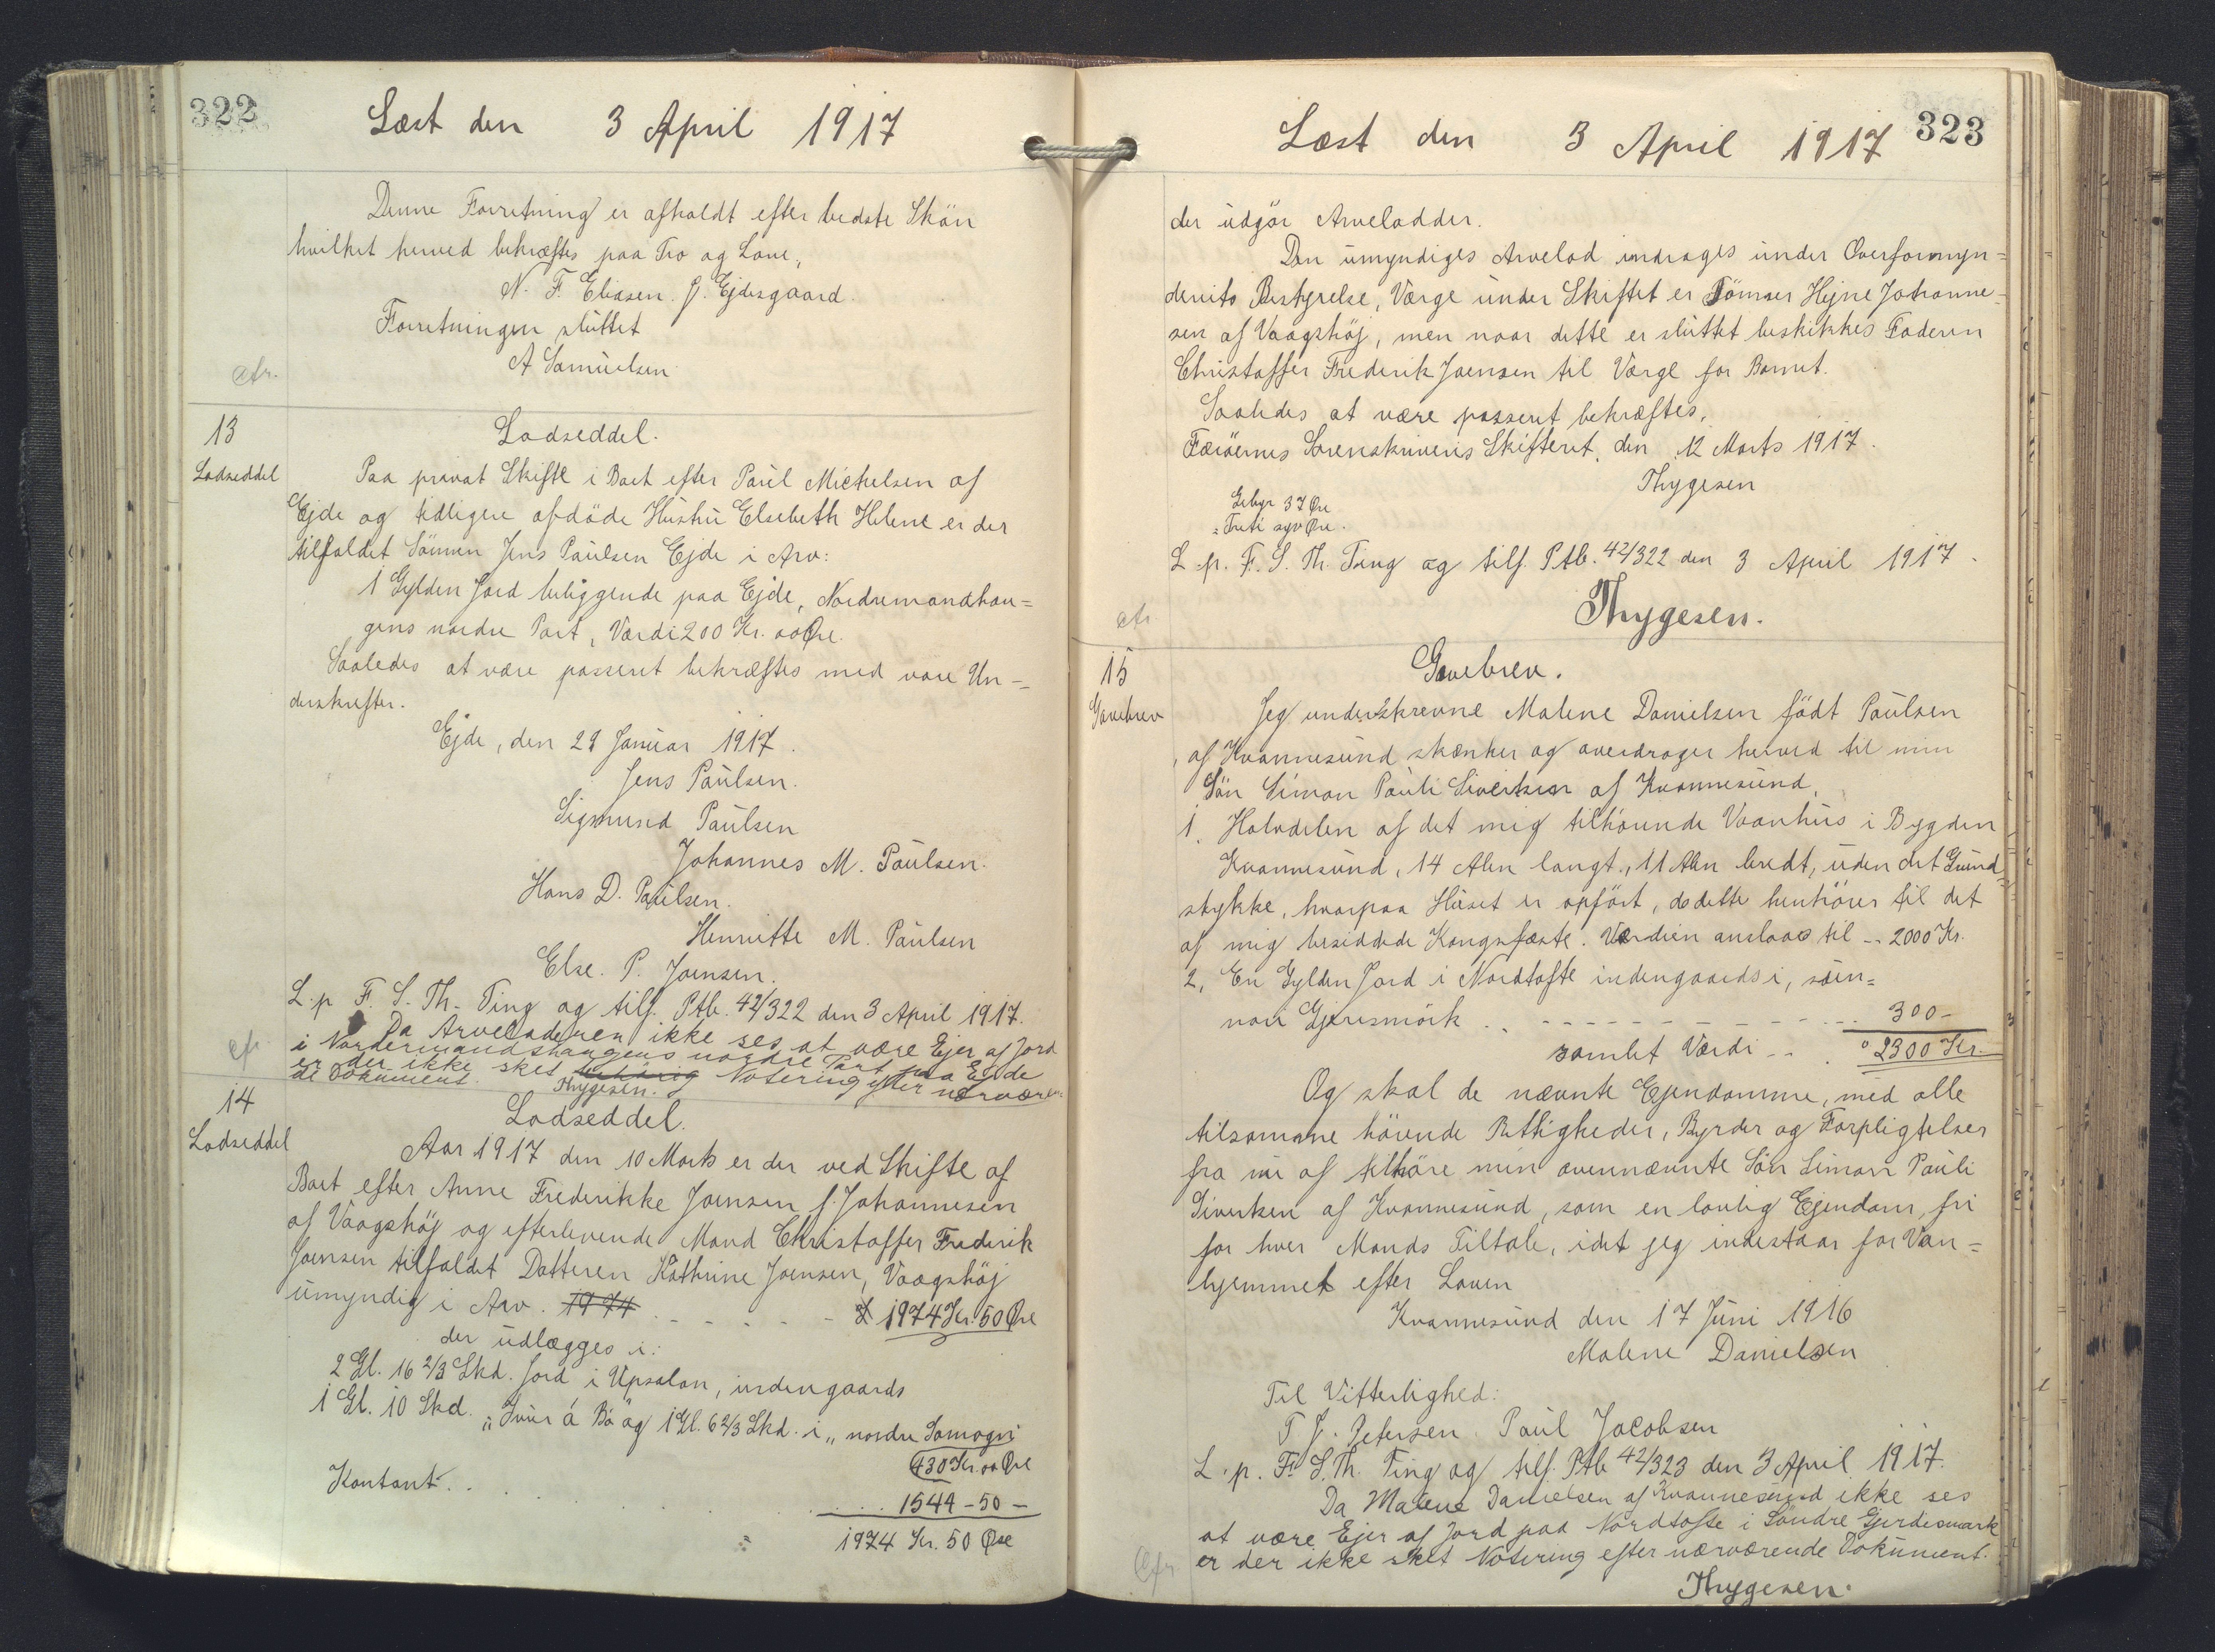 322
Læst den 3 April 1917
Denne Forretning er afholdt efter bedste Skön
hvilket herved bekræftes paa Tro og Love,
N. F. Eliasen. J. Ejdesgaard.
Forretningen sluttet
A Samuelsen
cfr.
13
Lodseddel.
Lodseddel
Paa privat Skifte i Boet efter Paul Michelsen af
Ejde og tidligere afdöde Hustru Elsebeth Helene er der
tilfaldet Sönnen Jens Paulsen Ejde i Arv:
1 Gylden Jord beliggende paa Ejde, Nordremandhau=
gens nordre Part, Værdi 200 Kr. 00 Øre.
Saaledes at være passeret bekræftes med vore Un-
derskrifter.
Ejde, den 29 Januar 1917.
Jens Paulsen.
Sigmund Paulsen
Johannes M. Paulsen.
Hans D. Paulsen.
Henriette M. Paulsen
Else. P. Joensen.
L. p F. S. Th. Ting og tilf. Ptb. 42/322 den 3 April 1917.
Da Arveladeren ikke ses at være Ejer af Jord
i Nordermandshaugens nordre Part paa Ejde
er der ikke sket Notering efter nærværen=
de Dokument. Thygesen.
cfr.
14
Lodseddel.
Lodseddel
Aar 1917 den 10 Marts er der ved Skifte af
Boet efter Anne Frederikke Joensen f. Johannesen
af Vaagshöj og efterlevende Mand Christoffer Frederik
Joensen tilfaldet Datteren Kathrine Joensen, Vaagshöj
umyndig i Arv. 1974 - - - - - 1974 Kr. 50 Øre
der udlægges i:
2 Gl. 16 2/3 Skd. Jord i Upsalon, indengaards
1 Gl. 10 Skd. "Suur á Bö og 1 Gl. 6 2/3 Skd. i "nordre Somogri
430 Kr. 00 Øre
Kontant . . . . . . 1544 - 50 -
1974 Kr. 50 Øre
323
Læst den 3 April 1917
der udgör Arvelodder.
Den umyndiges Arvelod inddrages under Overformyn=
deriets Bestyrelse, Værge under Skiftet er Tömser Hejne Johanne-
sen af Vaagshöj, men naar dette er sluttet beskikkes Faderen
Christoffer Frederik Joensen til Værge for Barnet.
Saaledes at være passeret bekræftes.
Færöernes Sorenskriveris Skifteret, den 12 Marts 1917.
Thygesen
Gebyr 37 Øre
= Treti syv Øre.
L. p. F. S. Th. Ting og tilf. Ptb. 42/322 den 3 April 1917.
Thygesen.
cfr
15
Gavebrev.
Gavebrev
Jeg underskrevne Malene Danielsen födt Paulsen
af Kvannesund skænker og overdrager herved til min
Sön Simon Pauli Sivertsen af Kvannesund,
1. Halvdelen af det mig tilhörende Vaanhus i Bygden
Kvannesund, 14 Alen langt, 11 Alen bredt, uden det Grund=
stykke, hvorpaa Huset er opfört, da dette henhörer til det
af mig besiddede Kongsfæste. Værdien anslaaes til - - 2000 Kr.
2, En Gylden Jord i Nordtofte indengaards i, söin=
nari Gjerismörk . . - - - - - - - - - 300 -
samlet Værdi - - . 2300 Kr.
Og skal de nævnte Ejendomme, med alle
tilsamme hörende Rettigheder, Byrder og Forpligtelser
fra nu af tilhöre min ovennævnte Sön Simon Pauli
Sivertsen af Kvannesund, som en lovlig Ejendom, fri
for hver Mands Tiltale, idet jeg indestaar for Van=
hjemmel efter Loven
Kvannesund den 17 Juni 1916
Malene Danielsen
Til Vitterlighed:
T J. Petersen. Paul Jacobsen
L. p. F. S. Th. Ting og tilf. Ptb 42/323 den 3 April 1917.
Da Malene Danielsen af Kvannesund ikke ses
at være Ejer af Jord paa Nordtofte i Söndre Gjerdismark
er der ikke sket Notering efter nærværende Dokument.
Thygesen.
Cfr